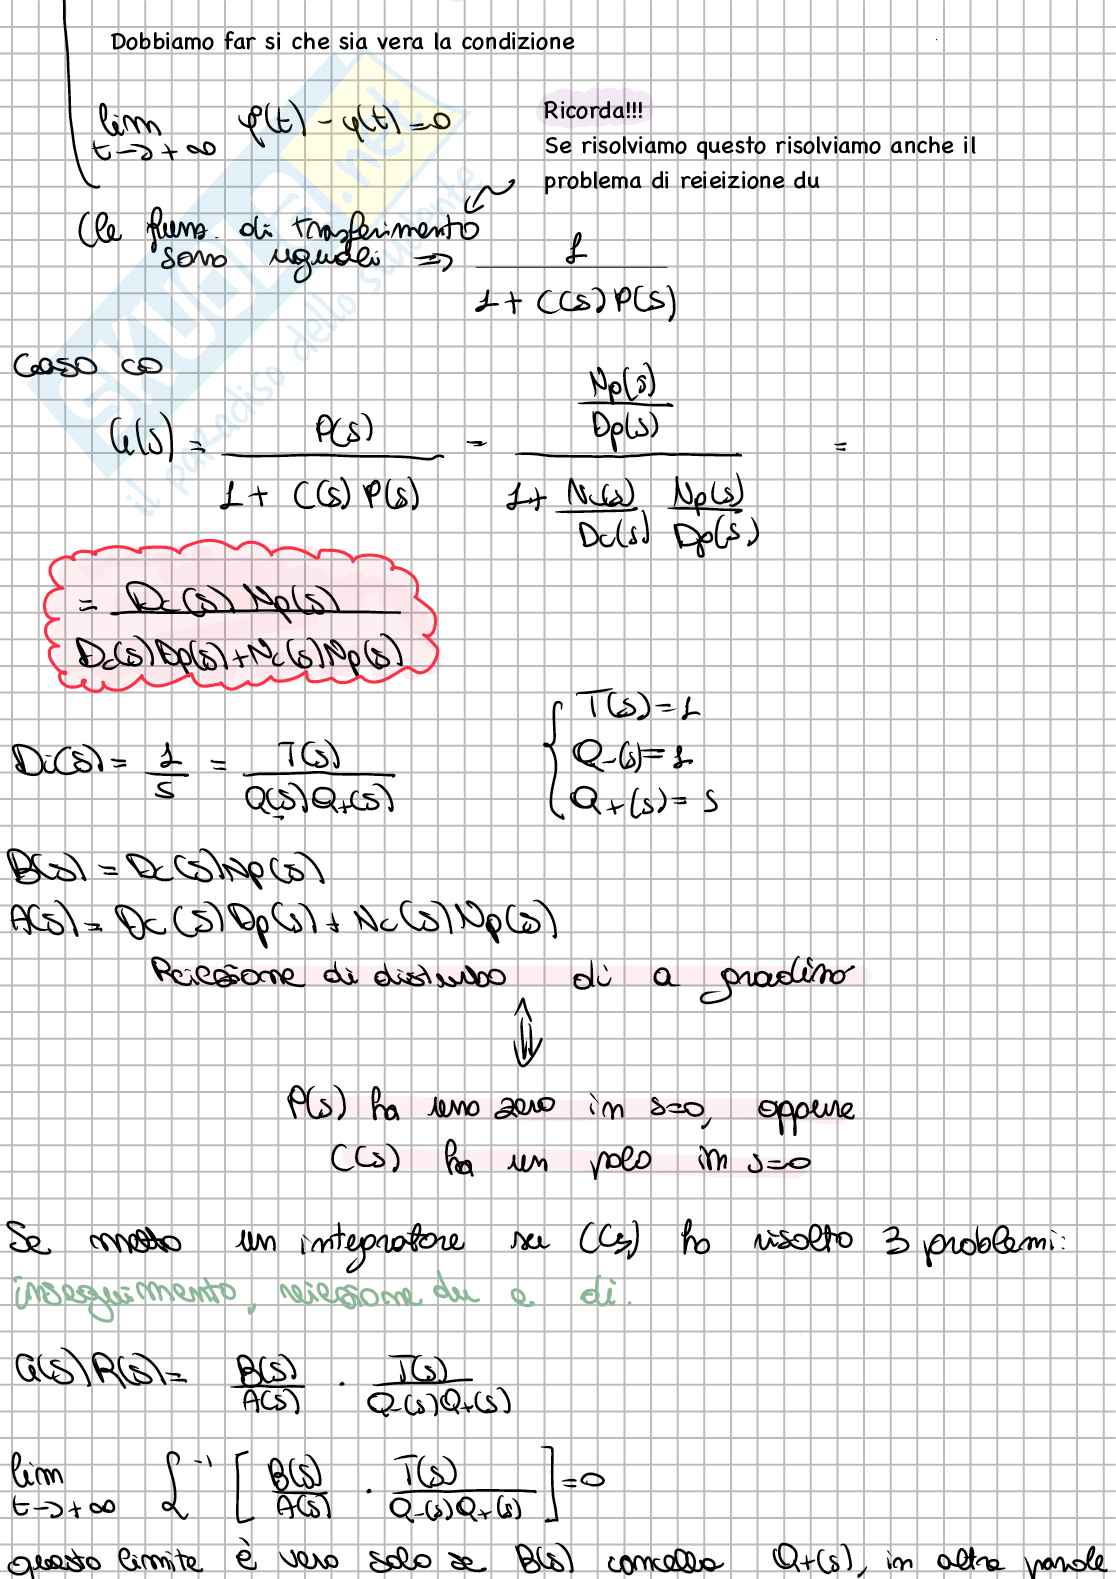 Dobbiamo far si che sia vera la condizione
lim t→+∞ φ(t) - φ(t) = 0
Ricorda!!!
Se risolviamo questo risolviamo anche il
problema di reieizione du
(le funz. di trasferimento
sono uguali ⇒ 1 / (1 + C(s) P(s))
Caso
G(s) = P(s) / (1 + C(s) P(s)) = (Np(s)/Dp(s)) / (1 + Nc(s)/Dc(s) Np(s)/Dp(s)) =
= Dc(s) Np(s) / (Dc(s)Dp(s)+Nc(s)Np(s))
Di(s) = 1/s = T(s) / (Q-(s)Q+(s))
T(s) = 1
Q-(s) = 1
Q+(s) = s
B(s) = Dc(s)Np(s)
A(s) = Dc(s)Dp(s) + Nc(s)Np(s)
Reiezione di disturbo di a gradino
⇕
P(s) ha uno zero in s=0, oppure
C(s) ha un polo in s=0
Se metto un integratore su C(s) ho risolto 3 problemi:
inseguimento, reiezione du e di.
G(s)R(s) = B(s)/A(s) · T(s)/(Q-(s)Q+(s))
lim t→+∞ L⁻¹ [ B(s)/A(s) · T(s)/(Q-(s)Q+(s)) ] = 0
questo limite è vero solo se B(s) cancella Q+(s), in altre parole
SKUOLA.net
il paradiso dello studente